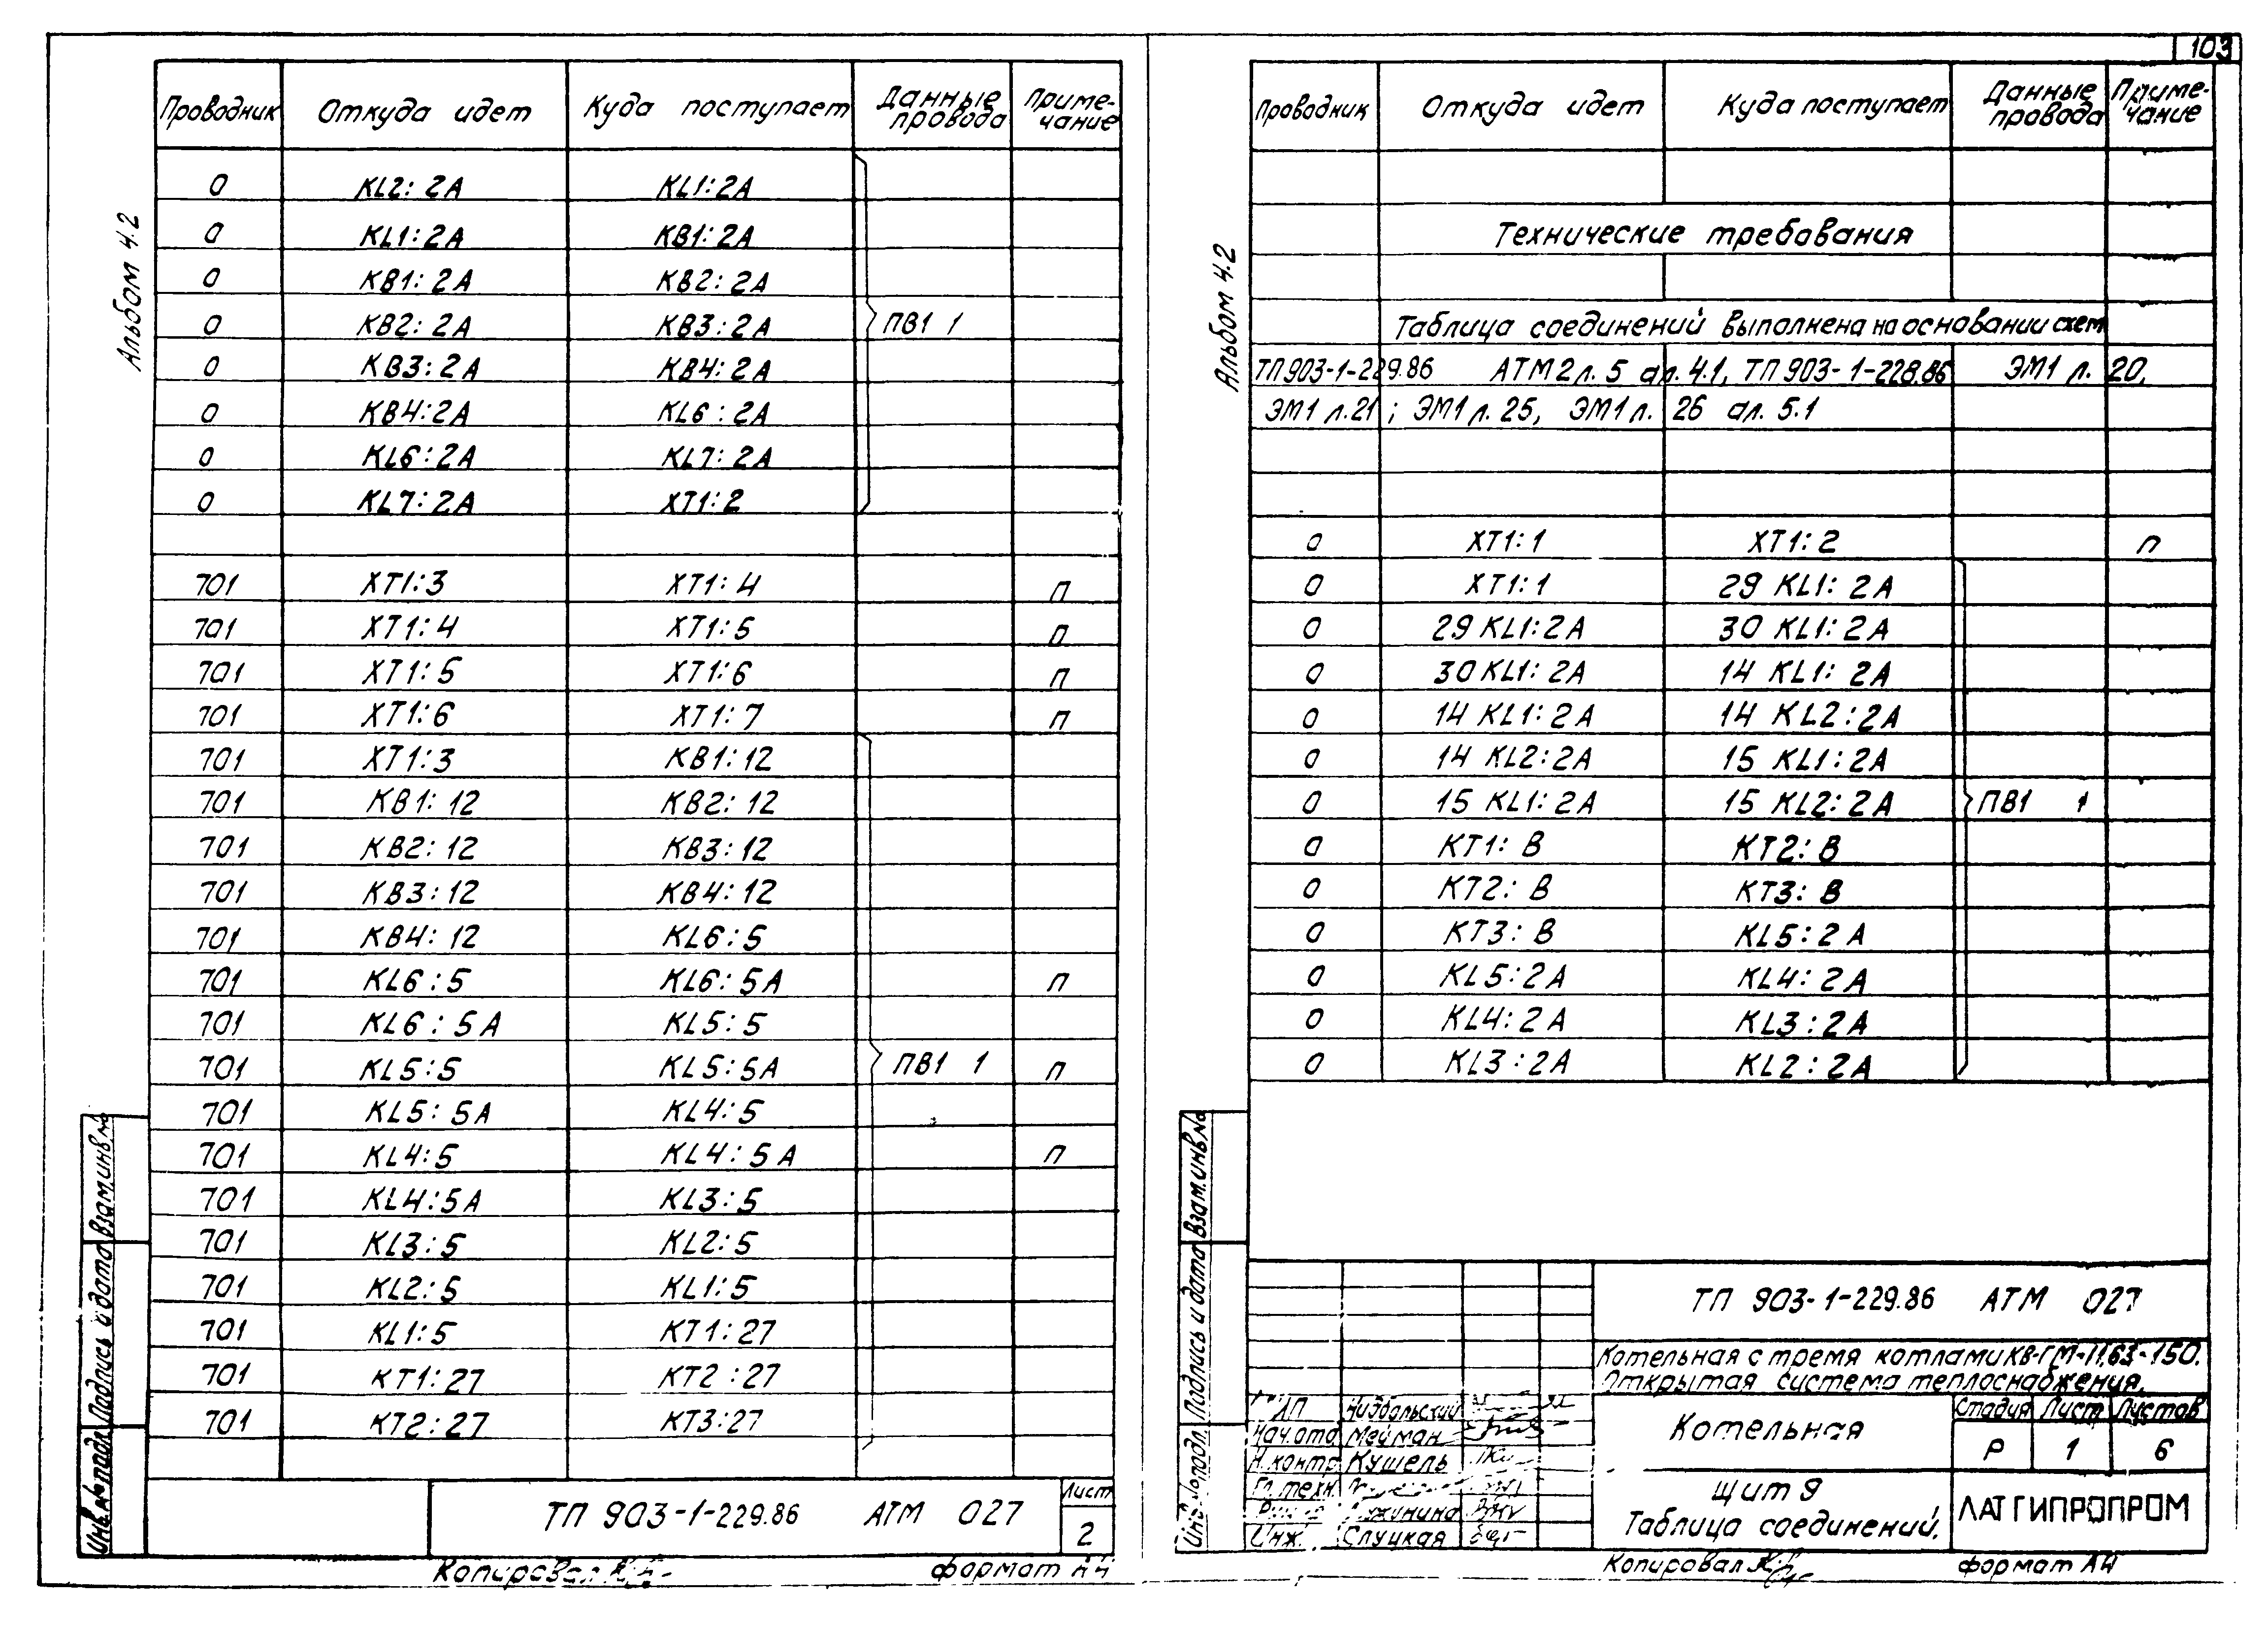 103
Альбом 4.2
Проводник Откуда идет Куда поступает Данные провода Приме-чание
0 KL2: 2A KL1: 2A
0 KL1: 2A KB1: 2A
0 KB1: 2A KB2: 2A
0 KB2: 2A KB3: 2A ПВ1 1
0 KB3: 2A KB4: 2A
0 KB4: 2A KL6: 2A
0 KL6: 2A KL7: 2A
0 KL7: 2A XT1: 2
701 XT1: 3 XT1: 4 П
701 XT1: 4 XT1: 5 П
701 XT1: 5 XT1: 6 П
701 XT1: 6 XT1: 7 П
701 XT1: 3 KB1: 12
701 KB1: 12 KB2: 12
701 KB2: 12 KB3: 12
701 KB3: 12 KB4: 12
701 KB4: 12 KL6: 5
701 KL6: 5 KL6: 5A П
701 KL6: 5A KL5: 5
701 KL5: 5 KL5: 5A ПВ1 1 П
701 KL5: 5A KL4: 5
701 KL4: 5 KL4: 5A П
701 KL4: 5A KL3: 5
701 KL3: 5 KL2: 5
701 KL2: 5 KL1: 5
701 KL1: 5 KT1: 27
701 KT1: 27 KT2: 27
701 KT2: 27 KT3: 27
Инв.№подл. Подпись и дата Взам.инв.№
ТП 903-1-229.86 АТМ 027
Лист
2
Копировал
формат А4
Альбом 4.2
Проводник Откуда идет Куда поступает Данные провода Приме-чание
Технические требования
Таблица соединений выполнена на основании схем
ТП 903-1-229.86 АТМ2 л. 5 ал. 4.1, ТП 903-1-228.86 ЭМ1 л. 20,
ЭМ1 л. 21; ЭМ1 л. 25, ЭМ1 л. 26 ал. 5.1
0 XT1: 1 XT1: 2 П
0 XT1: 1 29 KL1: 2A
0 29 KL1: 2A 30 KL1: 2A
0 30 KL1: 2A 14 KL1: 2A
0 14 KL1: 2A 14 KL2: 2A
0 14 KL2: 2A 15 KL1: 2A
0 15 KL1: 2A 15 KL2: 2A ПВ1 1
0 KT1: B KT2: B
0 KT2: B KT3: B
0 KT3: B KL5: 2A
0 KL5: 2A KL4: 2A
0 KL4: 2A KL3: 2A
0 KL3: 2A KL2: 2A
Подпись и дата Взам.инв.№
ТП 903-1-229.86 АТМ 027
Котельная с тремя котлами КВ-ГМ-11,63-150.
Открытая система теплоснабжения.
Нач.отд Мейман
Н.контр Кушель
Гл.техн.
Инж. Слуцкая
Котельная
Стадия Лист Листов
Р 1 6
Щит 9
Таблица соединений.
ЛАТГИПРОПРОМ
Копировал
формат А4